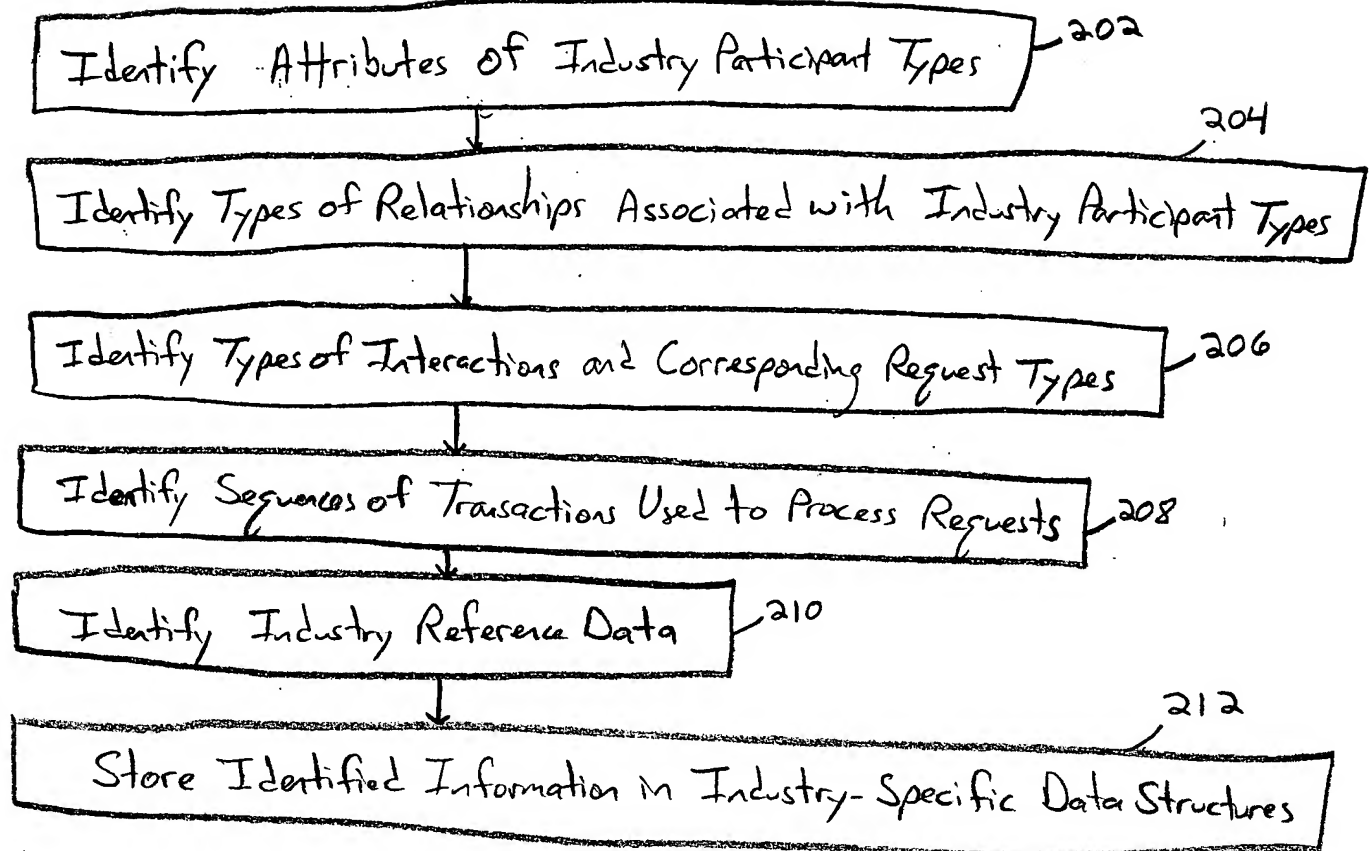 Identify Attributes of Industry Participant Types 202
204
Identify Types of Relationships Associated with Industry Participant Types
Identify Types of Interactions and Corresponding Request Types 206
Identify Sequences of Transactions Used to Process Requests 208
Identify Industry Reference Data 210
212
Store Identified Information in Industry-Specific Data Structures